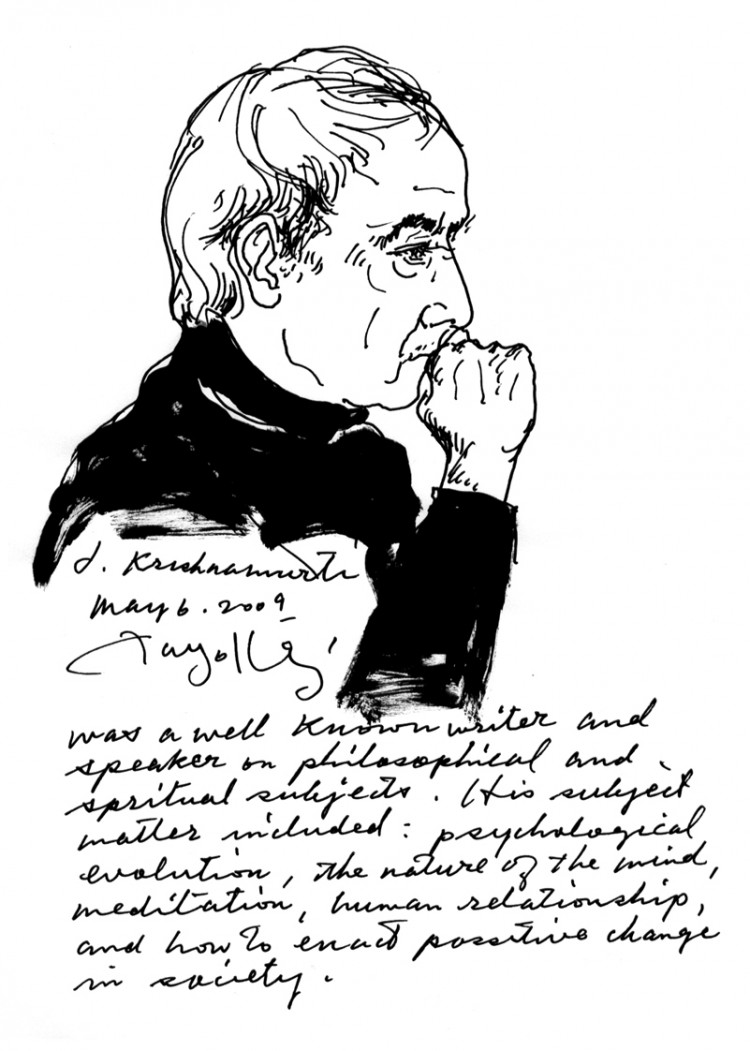 J. Krishnamurti
May 6. 2009
was a well known writer and
speaker on philosophical and
spritual subjects. His subject
matter included: psychological
evolution, the nature of the mind,
meditation, human relationship,
and how to enact possitive change
in society.